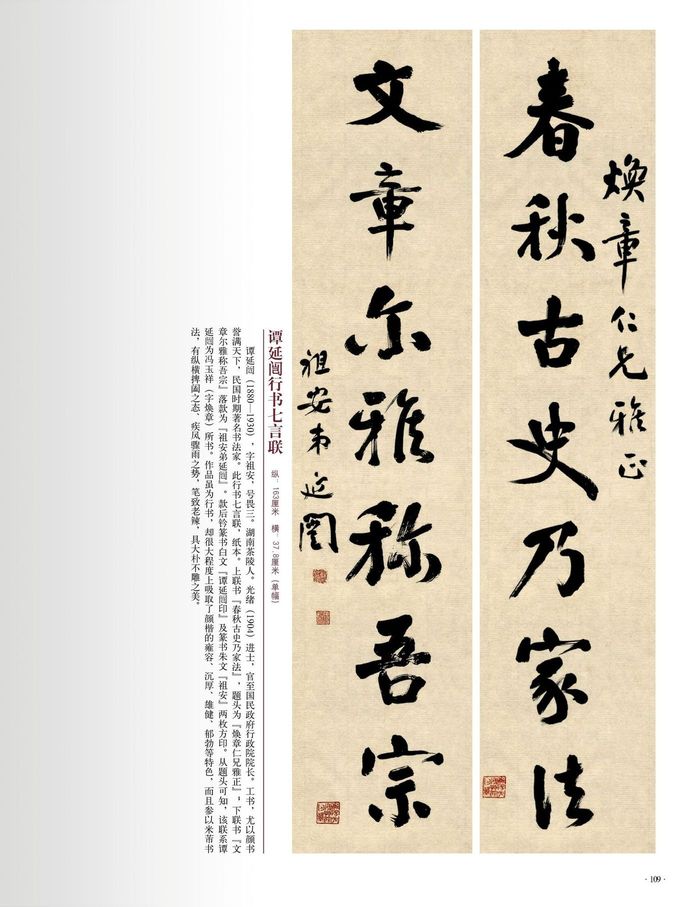 煥章仁兄雅正
春秋古史乃家法
文章尔雅称吾宗
祖安弟延闿
谭延闿行书七言联
纵：163厘米　横：37.8厘米（单幅）
谭延闿（1880—1930），字祖安，号畏三。湖南茶陵人。光绪（1904）进士，官至国民政府行政院院长。工书，尤以颜书
誉满天下，民国时期著名书法家。此行书七言联，纸本。上联书『春秋古史乃家法』，题头为『焕章仁兄雅正』；下联书『文
章尔雅称吾宗』落款为『祖安弟延闿』。款后钤篆书白文『谭延闿印』及篆书朱文『祖安』两枚方印。从题头可知，该联系谭
延闿为冯玉祥（字焕章）所书。作品虽为行书，却很大程度上吸取了颜楷的雍容、沉厚、雄健、郁勃等特色，而且参以米芾书
法，有纵横捭阖之态、疾风骤雨之势，笔致老辣，具大朴不雕之美。
·109·